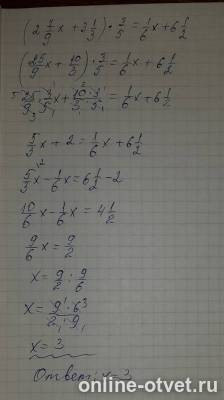 (2 7/9 x + 3 1/3) · 3/5 = 1/6 x + 6 1/2
(25/9 x + 10/3) · 3/5 = 1/6 x + 6 1/2
5 25/9 3 · 3 1/5 1 x + 10 2/3 1 · 3 1/5 1 = 1/6 x + 6 1/2
5/3 x + 2 = 1/6 x + 6 1/2
5/3 \2 x - 1/6 x = 6 1/2 - 2
10/6 x - 1/6 x = 4 1/2
9/6 x = 9/2
x = 9/2 : 9/6
x = 9 1 · 6 3 / 2 1 · 9 1
x = 3
Ответ: x = 3
online-otvet.ru